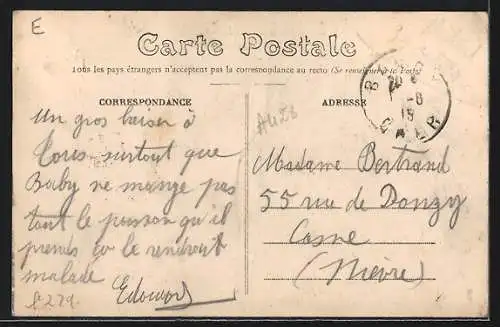 E
Carte Postale
Tous les pays étrangers n'acceptent pas la correspondance au recto (Se renseigner à la Poste)
CORRESPONDANCE
ADRESSE
Un gros baiser à
Tous surtout que
Baby ne mange pas
tout le poisson qu'il
prends le rendrait
malade
Edouard
Madame Bertrand
55 rue de Donzy
Cosne
(Nièvre)